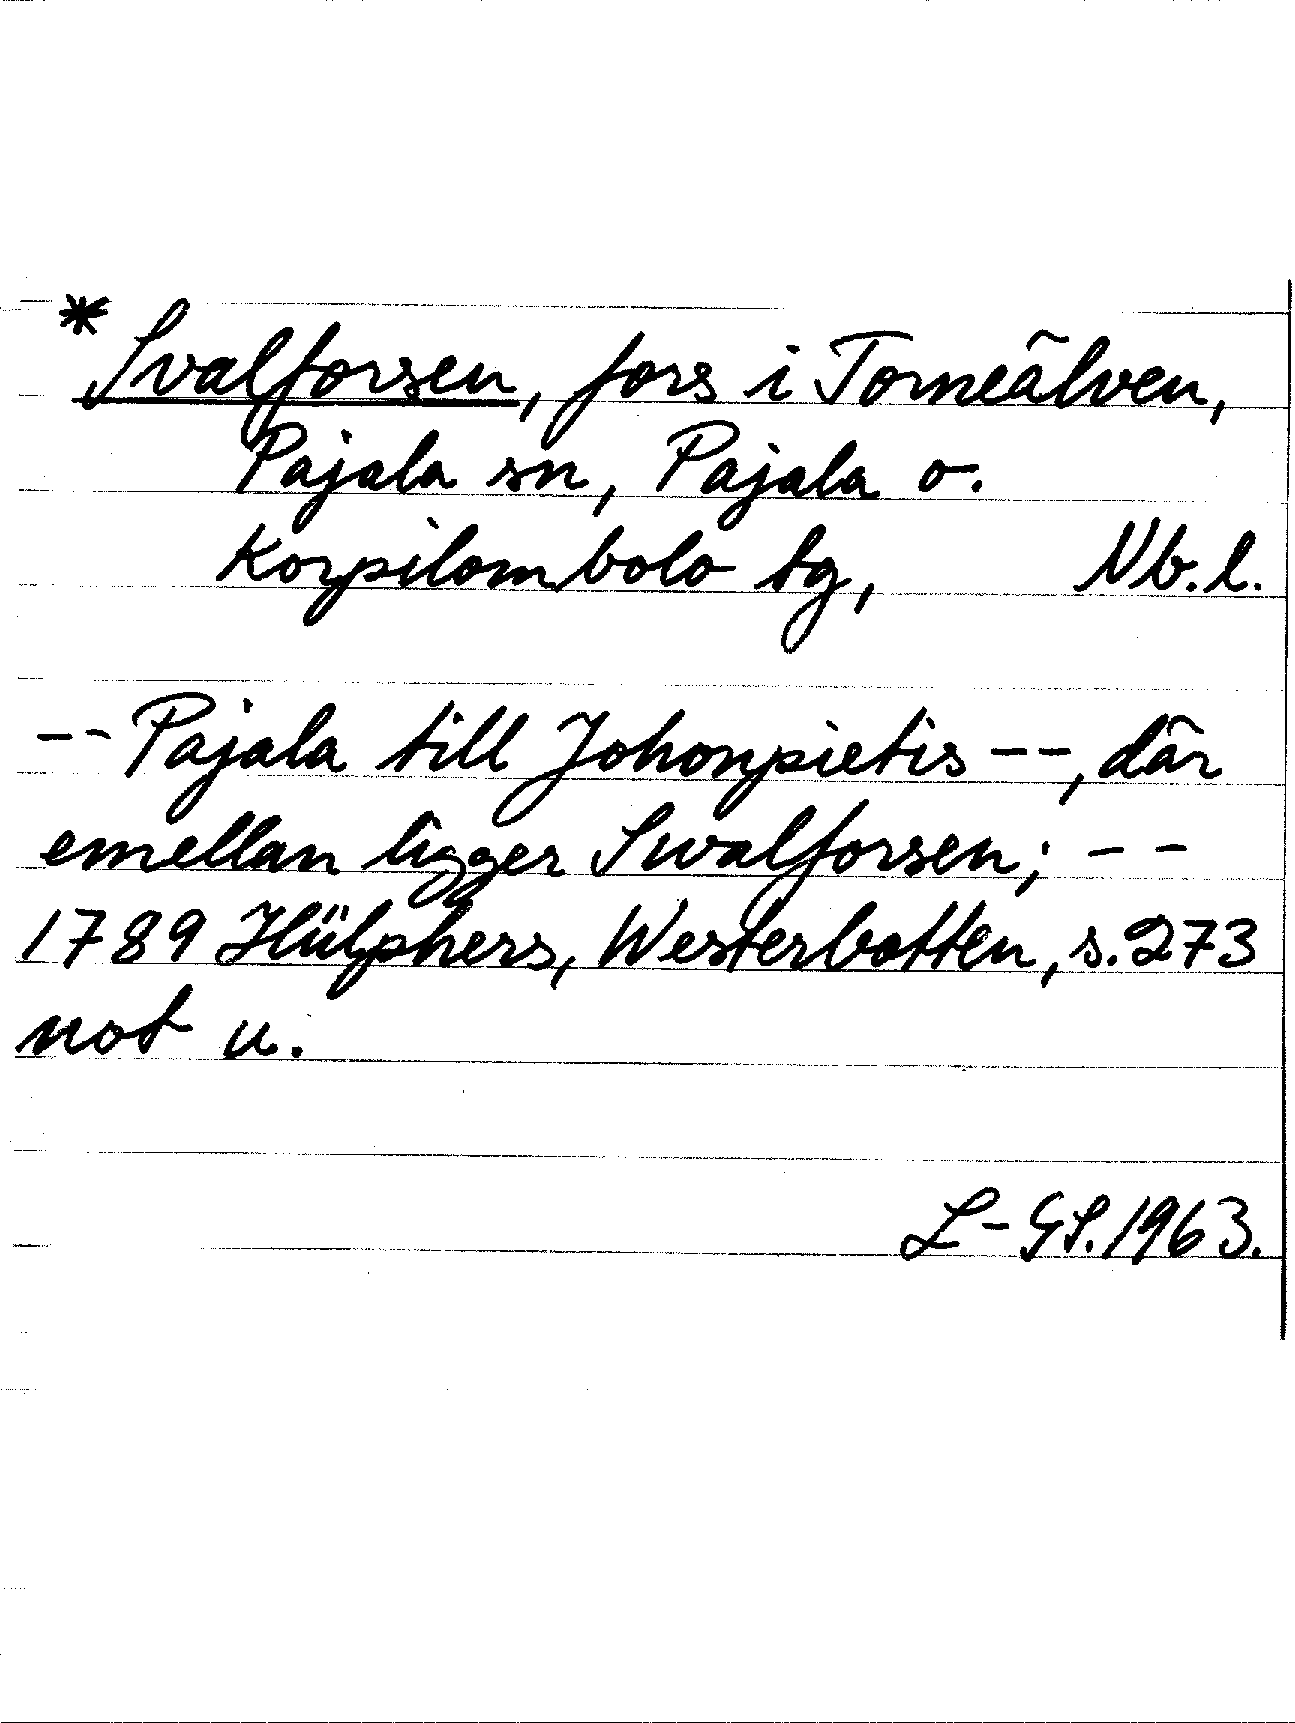 * Svalforsen, fors i Torneälven,
Pajala sn, Pajala o.
Korpilombolo tg, Nb.l.
-- Pajala till Johonpietis --, där
emellan ligger Swalforsen; --
1789 Hülphers, Westerbotten, s. 273
not u.
L-GS. 1963.